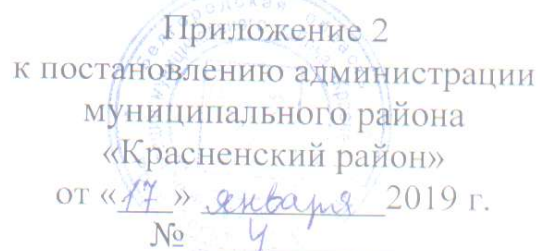 Приложение 2
к постановлению администрации
муниципального района
«Красненский район»
от «17» января 2019 г.
№ 4